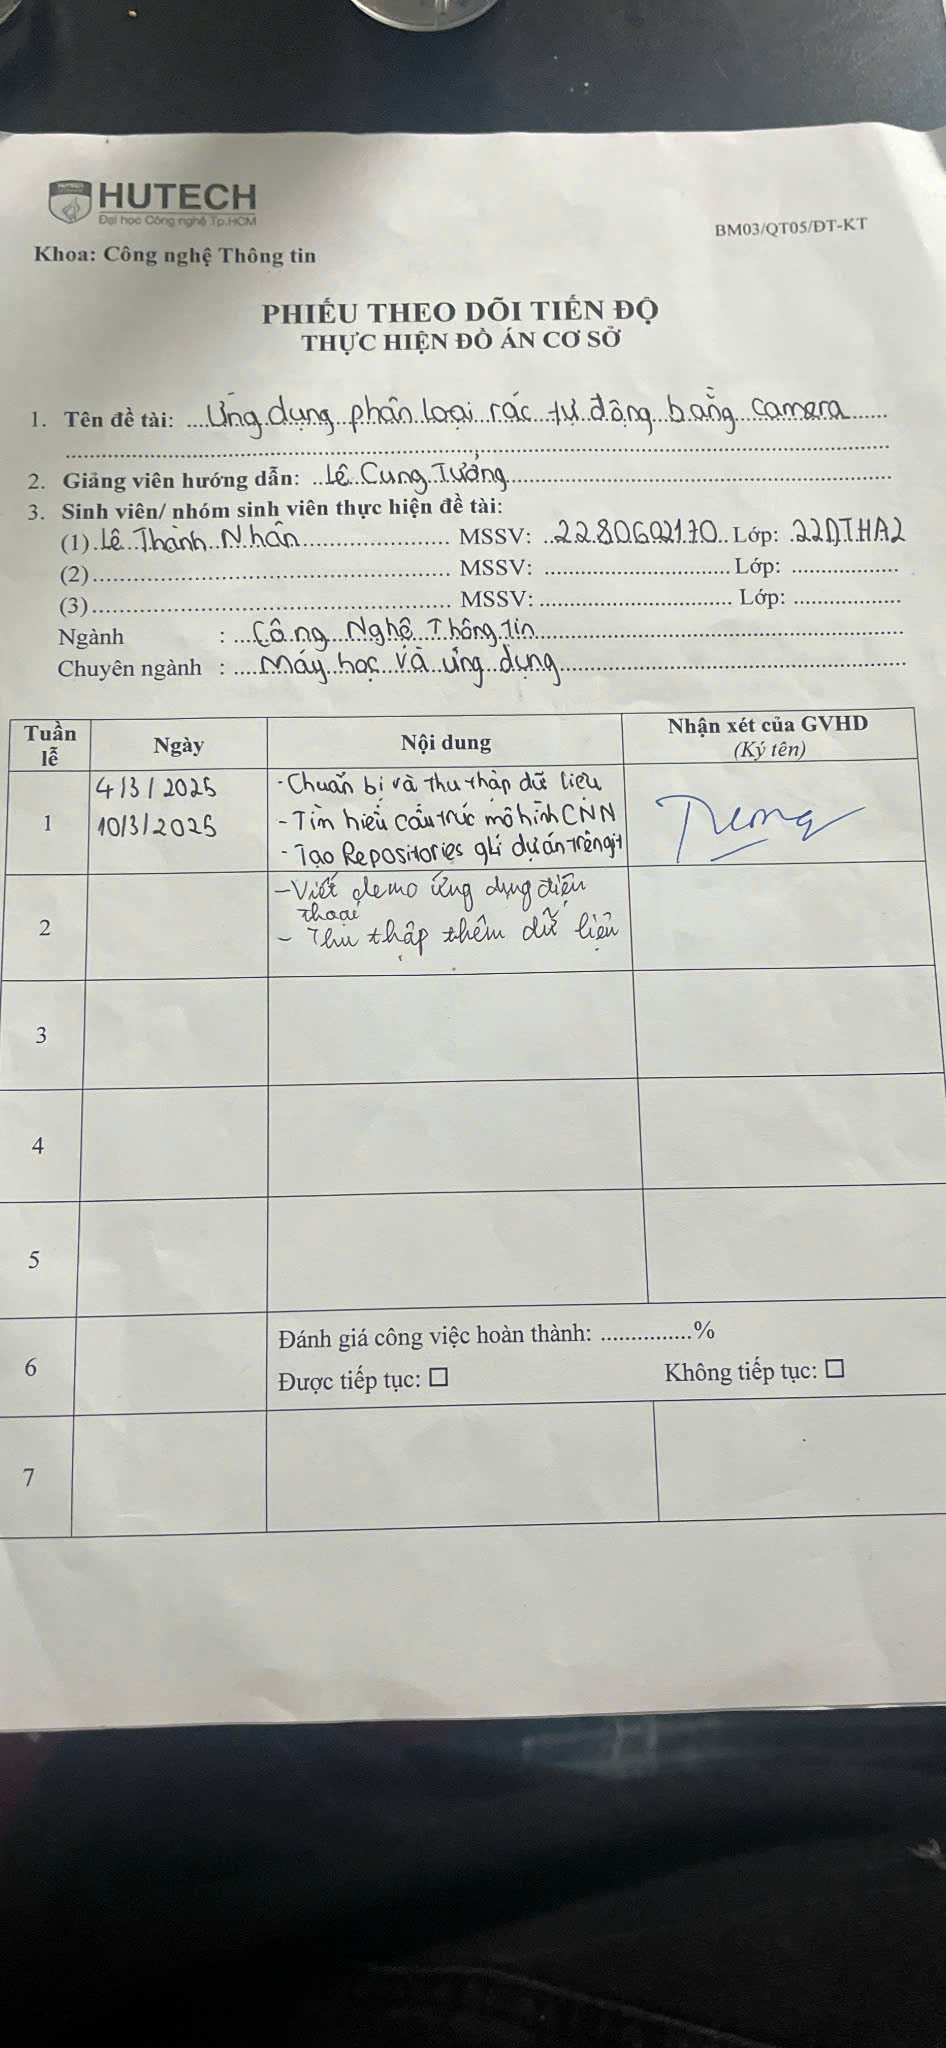 HUTECH
Đại học Công nghệ Tp.HCM
BM03/QT05/ĐT-KT
Khoa: Công nghệ Thông tin
PHIẾU THEO DÕI TIẾN ĐỘ
THỰC HIỆN ĐỒ ÁN CƠ SỞ
1. Tên đề tài: Ứng dụng phân loại rác tự động bằng camera
2. Giảng viên hướng dẫn: Lê Cung Tưởng
3. Sinh viên/ nhóm sinh viên thực hiện đề tài:
(1) Lê Thành Nhân MSSV: 2280602170 Lớp: 22DTHA2
(2) MSSV: Lớp:
(3) MSSV: Lớp:
Ngành : Công Nghệ Thông Tin
Chuyên ngành : Máy học và ứng dụng
Tuần lễ Ngày Nội dung Nhận xét của GVHD (Ký tên)
1 4/3/2025 - Chuẩn bị và thu thập dữ liệu
10/3/2025 - Tìm hiểu cấu trúc mô hình CNN
- Tạo Repositories dự án trên git
2 - Viết demo ứng dụng điện
thoại
- Thu thập thêm dữ liệu
3
4
5
6 Đánh giá công việc hoàn thành: ...............%
Được tiếp tục: ☐ Không tiếp tục: ☐
7